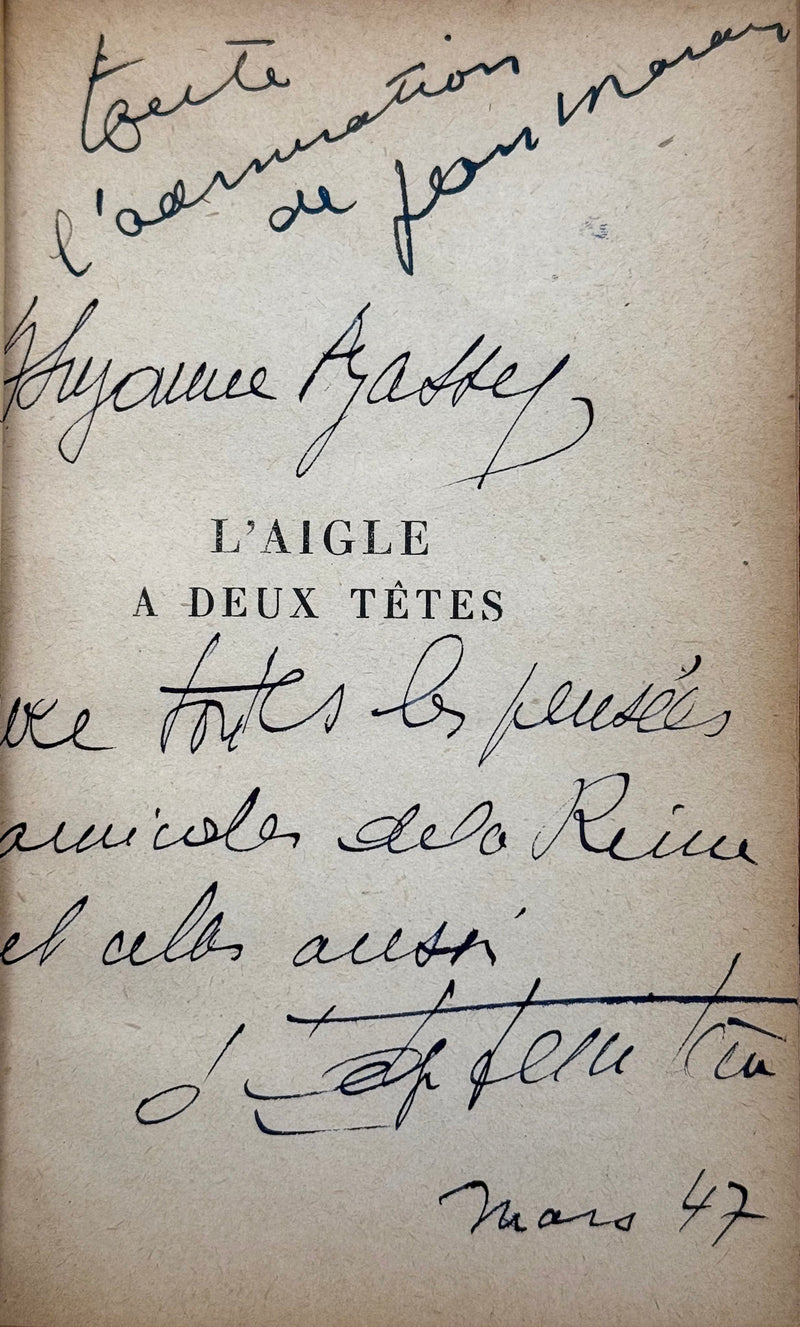 toute
l'admiration
de Jean Marais
L'AIGLE
A DEUX TÊTES
toutes les pensées
amicales de la Reine
et celles aussi
d'Edwige Feuillère
mars 47